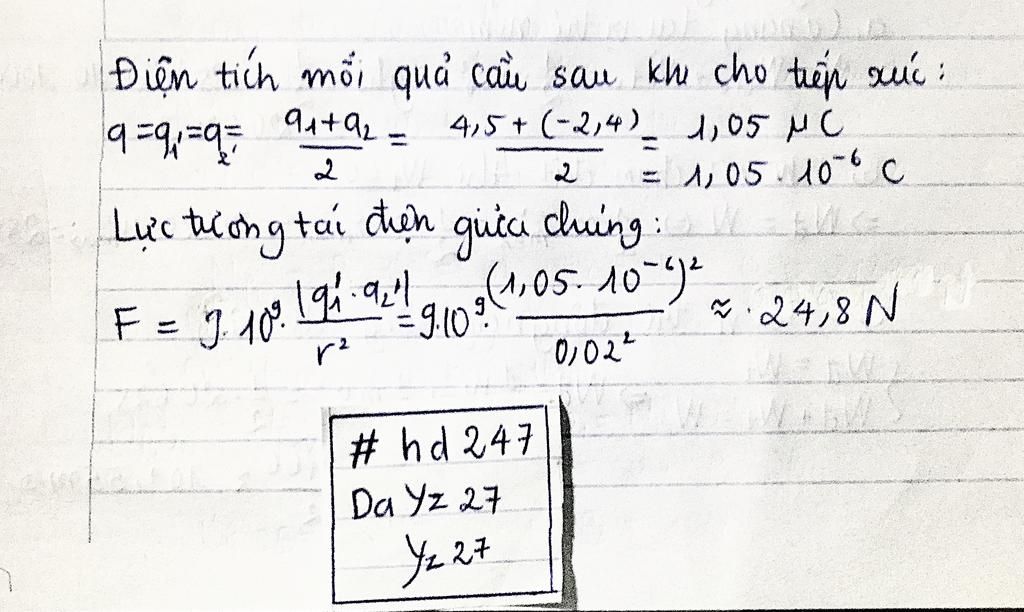 Điện tích mỗi quả cầu sau khi cho tiếp xúc:
q = q₁' = q₂' = (q₁+q₂)/2 = (4,5 + (-2,4))/2 = 1,05 μC
= 1,05 . 10⁻⁶ C
Lực tương tác điện giữa chúng:
F = 9.10⁹. |q₁'.q₂'|/r² = 9.10⁹. (1,05. 10⁻⁶)²/0,02² ≈ 24,8 N
# hd 247
Da Yz 27
Yz 27